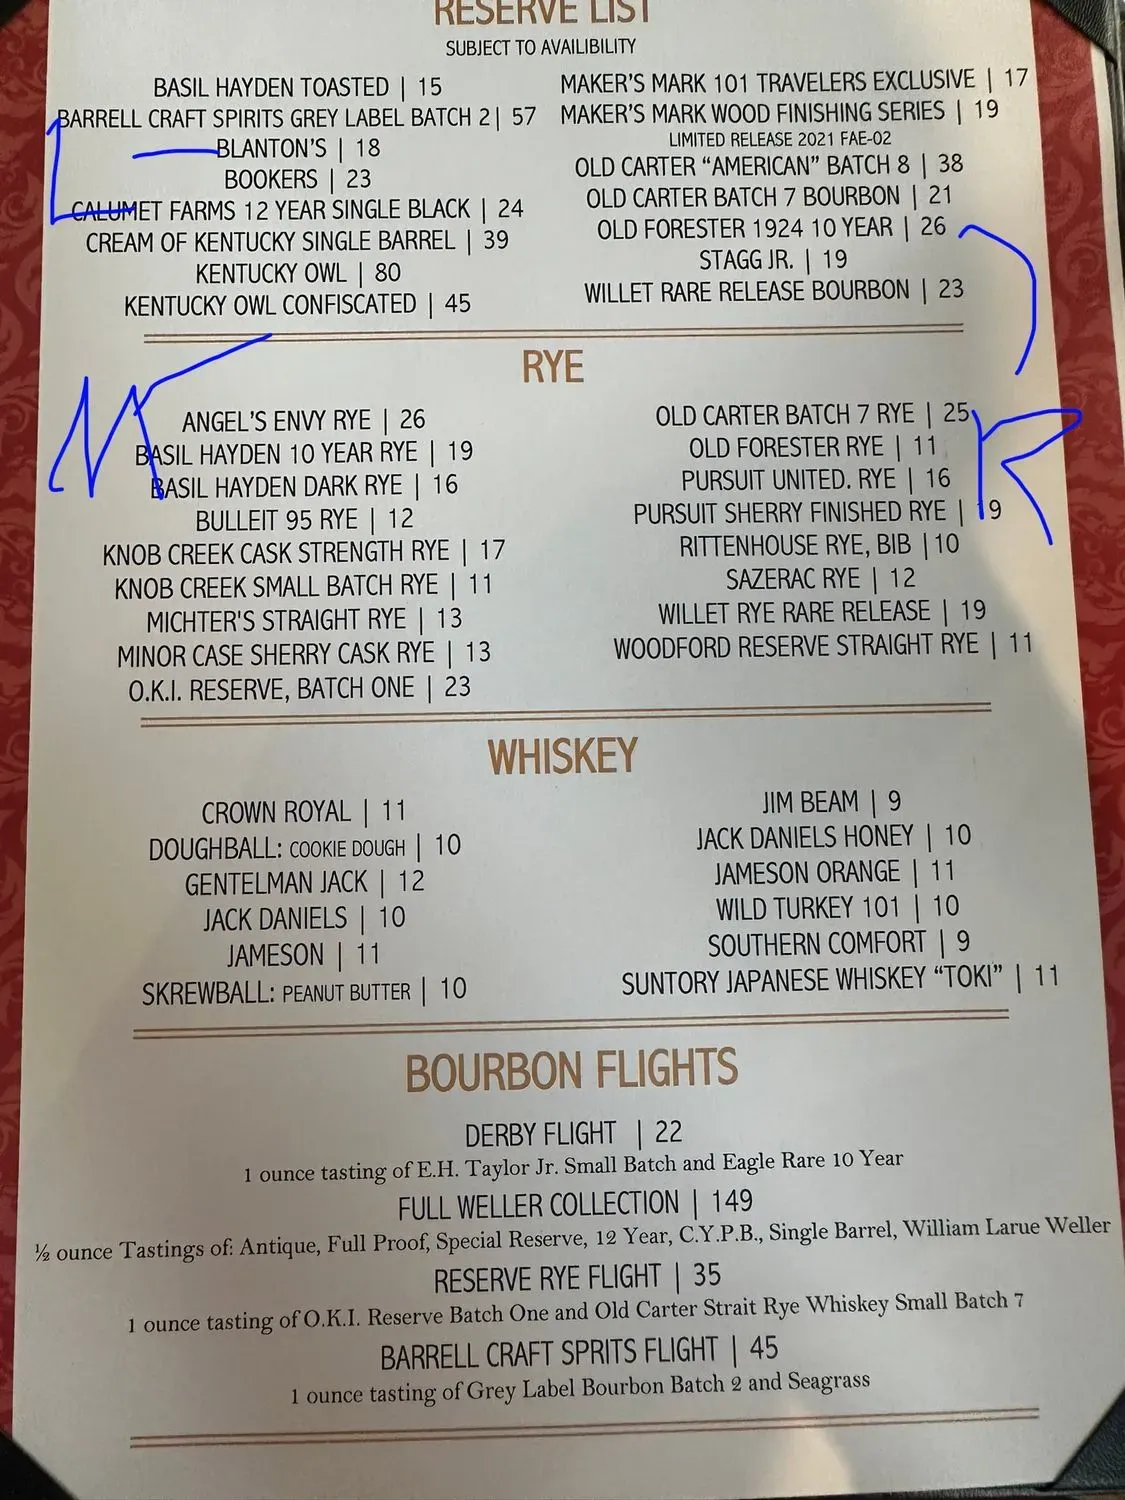 RESERVE LIST
SUBJECT TO AVAILIBILITY
BASIL HAYDEN TOASTED | 15
BARRELL CRAFT SPIRITS GREY LABEL BATCH 2| 57
BLANTON'S | 18
BOOKERS | 23
CALUMET FARMS 12 YEAR SINGLE BLACK | 24
CREAM OF KENTUCKY SINGLE BARREL | 39
KENTUCKY OWL | 80
KENTUCKY OWL CONFISCATED | 45
MAKER'S MARK 101 TRAVELERS EXCLUSIVE | 17
MAKER'S MARK WOOD FINISHING SERIES | 19
LIMITED RELEASE 2021 FAE-02
OLD CARTER “AMERICAN” BATCH 8 | 38
OLD CARTER BATCH 7 BOURBON | 21
OLD FORESTER 1924 10 YEAR | 26
STAGG JR. | 19
WILLET RARE RELEASE BOURBON | 23
RYE
ANGEL'S ENVY RYE | 26
BASIL HAYDEN 10 YEAR RYE | 19
BASIL HAYDEN DARK RYE | 16
BULLEIT 95 RYE | 12
KNOB CREEK CASK STRENGTH RYE | 17
KNOB CREEK SMALL BATCH RYE | 11
MICHTER'S STRAIGHT RYE | 13
MINOR CASE SHERRY CASK RYE | 13
O.K.I. RESERVE, BATCH ONE | 23
OLD CARTER BATCH 7 RYE | 25
OLD FORESTER RYE | 11
PURSUIT UNITED. RYE | 16
PURSUIT SHERRY FINISHED RYE | 19
RITTENHOUSE RYE, BIB |10
SAZERAC RYE | 12
WILLET RYE RARE RELEASE | 19
WOODFORD RESERVE STRAIGHT RYE | 11
WHISKEY
CROWN ROYAL | 11
DOUGHBALL: COOKIE DOUGH | 10
GENTELMAN JACK | 12
JACK DANIELS | 10
JAMESON | 11
SKREWBALL: PEANUT BUTTER | 10
JIM BEAM | 9
JACK DANIELS HONEY | 10
JAMESON ORANGE | 11
WILD TURKEY 101 | 10
SOUTHERN COMFORT | 9
SUNTORY JAPANESE WHISKEY “TOKI” | 11
BOURBON FLIGHTS
DERBY FLIGHT | 22
1 ounce tasting of E.H. Taylor Jr. Small Batch and Eagle Rare 10 Year
FULL WELLER COLLECTION | 149
½ ounce Tastings of: Antique, Full Proof, Special Reserve, 12 Year, C.Y.P.B., Single Barrel, William Larue Weller
RESERVE RYE FLIGHT | 35
1 ounce tasting of O.K.I. Reserve Batch One and Old Carter Strait Rye Whiskey Small Batch 7
BARRELL CRAFT SPRITS FLIGHT | 45
1 ounce tasting of Grey Label Bourbon Batch 2 and Seagrass